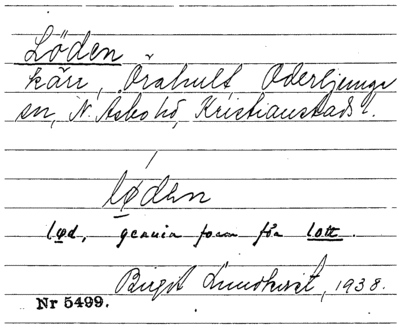 Löden
kärr, Örahult Oderljunga
sn, N. Åsbo hd, Kristianstads l.
løden
lød, form för lott.
Birgit Lundkvist, 1938.
Nr 5499.